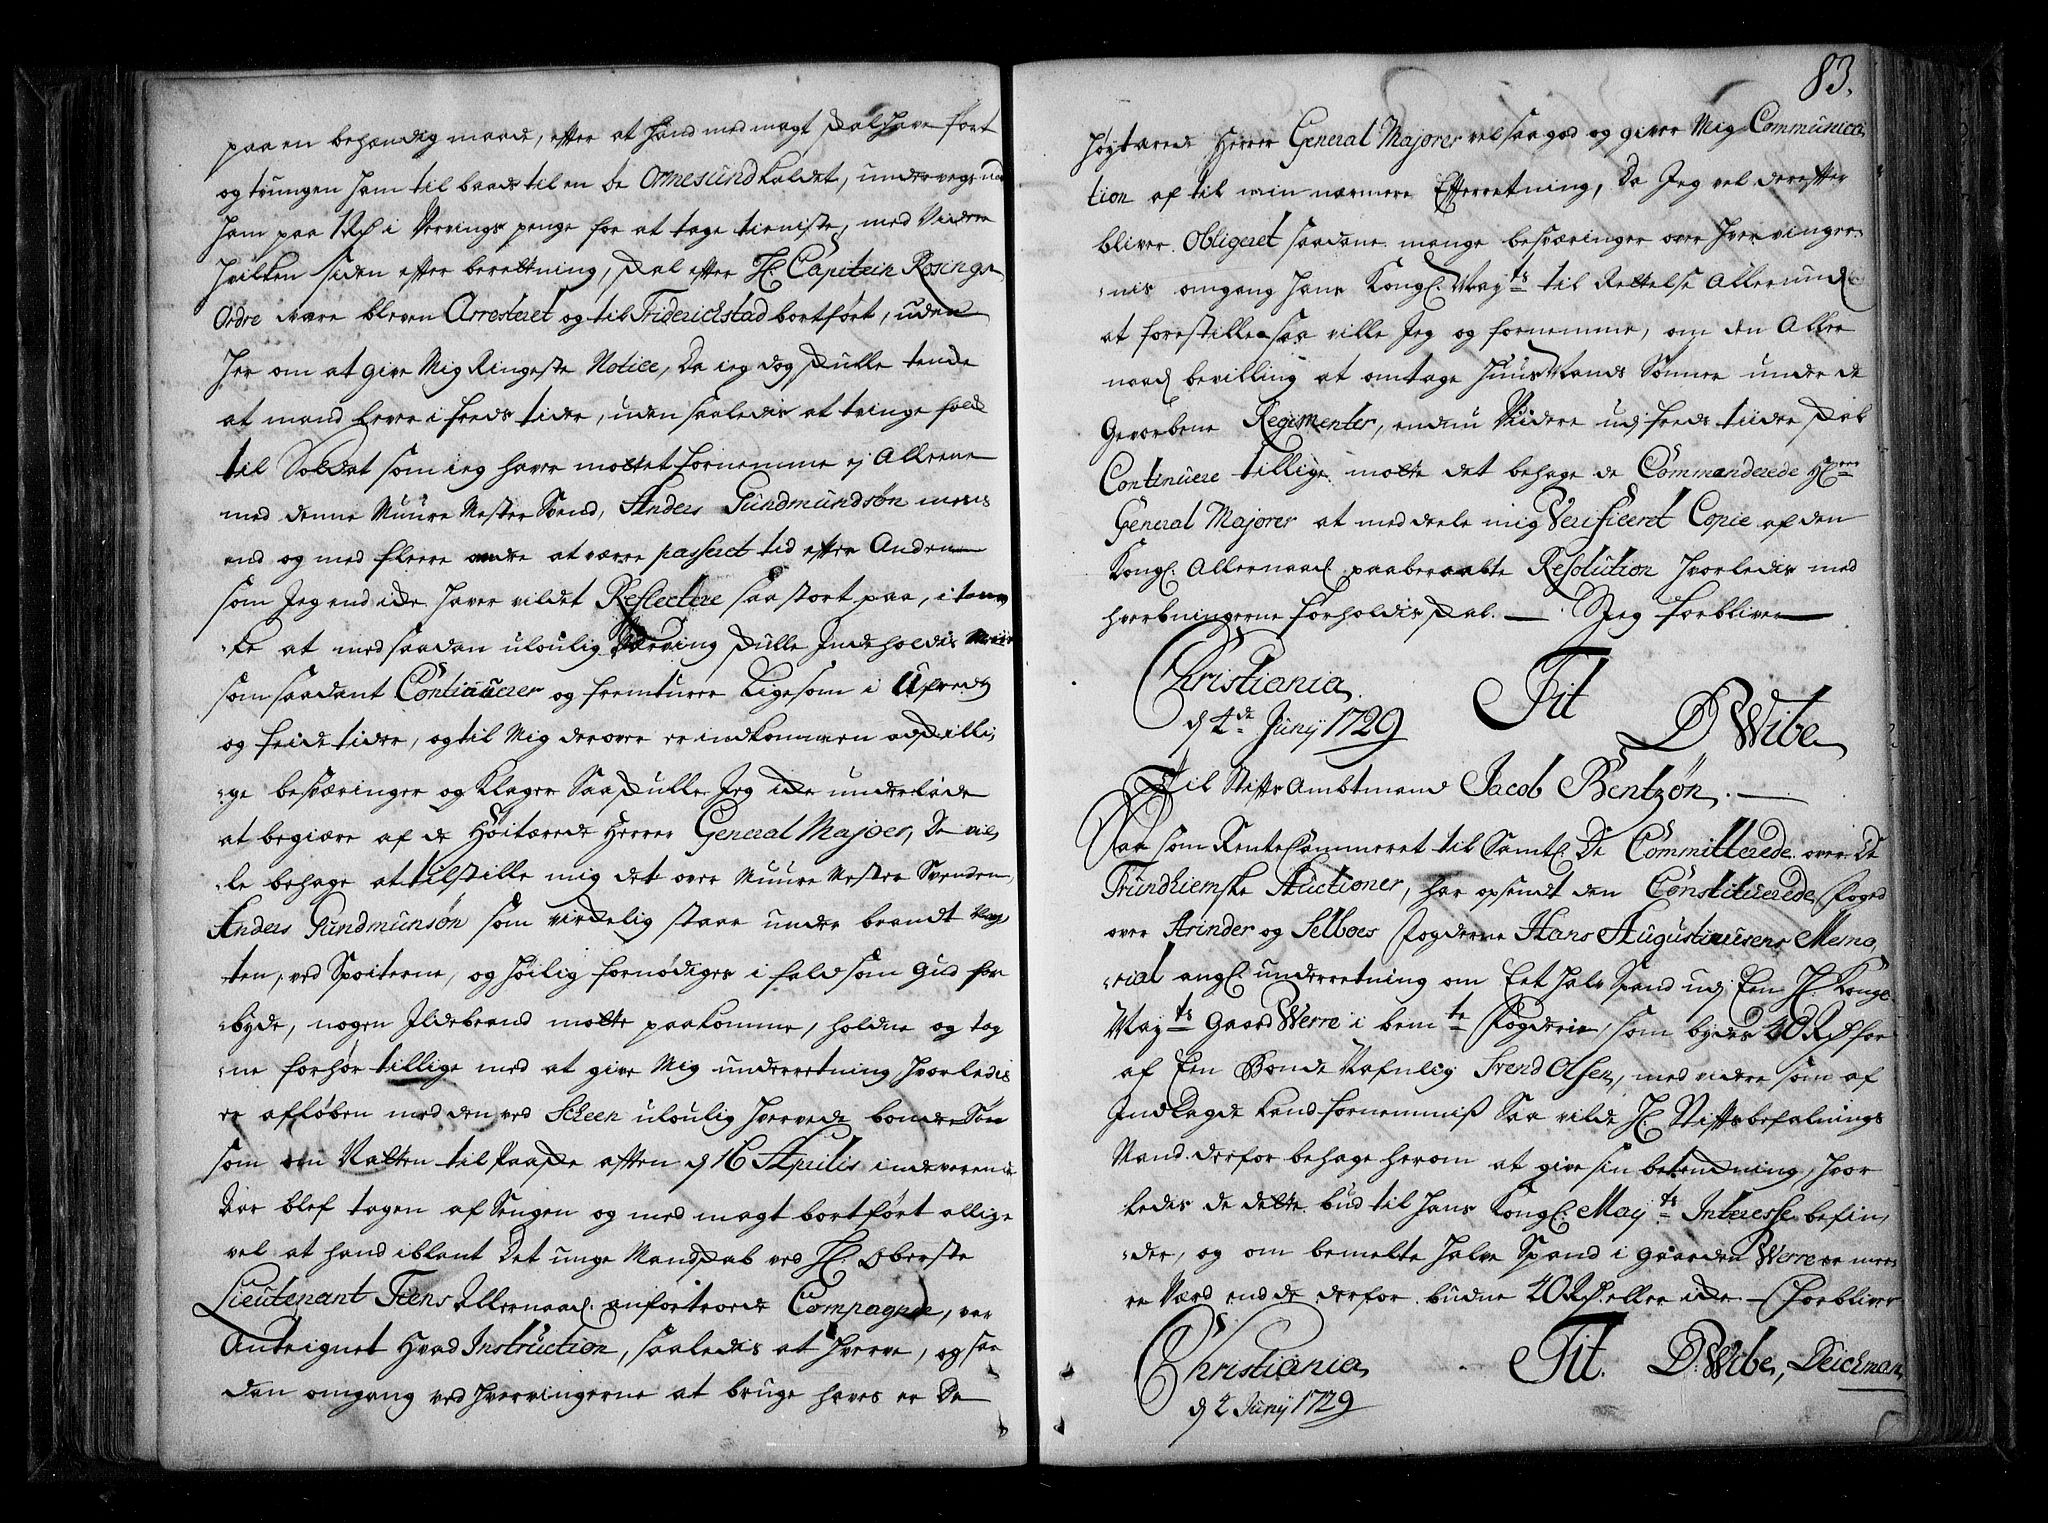 paa en behændig maade, efter at hand med magt skal have ført
og tvungen ham til baads til en De Ormesund kaldet, undervegs
ham paa 1 Rd i Hvervings penge for at tage tieniste, med Viidere
hvilken siden efter beretning, skal efter H: Capitein Rosings
Ordre være bleven Arresteret og til Friderichstad bortført, uden
her om at give Mig Ringeste Notice, Da ieg dog skulle tende
at mand lever i freds tider, uden saaledis at tvinge folk
til Soldat som ieg haver mottet fornemme ej Alleene
med denne Muure Mester Svend, Anders Gundmundsøn mens
end og med fleere andre at være passeret tid efter Anden
som Jeg end icke haver vildet Reflectere saa stort paa, i tan
-ke at med saadan uloulig Hverving skulle Indeholdes Men
som saadant Continuerer og fremturer Ligesom i Ufreds
og feide tider, og til Mig derover er indkommen adskilli-
-ge besværinger og Klager Saa skulle Jeg icke underlade
at begiære af de Høitærede Herrer General Majoer, De vil-
-le behage at tilstille mig det over Muure Mester Svenden,
Anders Gundmunsøn som virckelig staar under brandt Vag
ten, ved Sprøiterne, og høilig fornødiges i fald som Gud for
-byde, nogen Ildebrand motte paakomme, holdne og tag
-ne forhør tillige med at give Mig underretning, hvorledis
er afløben med den ved Scheen uloulig hvervede bonde Søn
som om Natten til Paaske aften d 16 Aprilis indeværende
Aar blef tagen af Sengen og med magt bortført allige
vel at hand iblant Det unge Mandskab ved H: Oberste
Lieutenant Fiens Allernaad. anfortroede Compagnie, var
Anteignet Hvad Instruction, saaledis at hverve, og saa
dan omgang ved hvervingerne at bruge haves er De
83.
høytærede Herrer General Majorer vel saa god og giver Mig Communica
tion af til min nærmere Efterretning, Da Jeg vel derefter
bliver Obligeret saadane mange besværinger over hvervinger-
-nis omgang hans Kongl. Mayts til Rettelse Allerund.
at forestille saa ville Jeg og fornemme, om den Aller
naad bevilling at antage HuusMands Sønner under de
Gevorbene Regimenter, endnu Viidere udj freds tiider skal
Continuere tillige motte det behage de Commanderede H:rrer
General Majorer at meddeele mig Verificeret Copie af den
Kongl. Allernaad. paaberaabte Resolution hvorledis med
hverbningerne forholdis skal. — Jeg forbliver
Christiania Tit D Wibe
d 2de Junij 1729
Til StiftsAmbtmand Jacob Bentzøn. —
Saasom RenteCammeret til Samtl. De Committerede over De
Trundhiemske Auctioner, har opsendt den Constituerede Foged
over Strinder og Selboes Fogderie Hans Augustinusens Memo-
-rial angl. underretning om Eet halv Spand udj Een H: Kongl.
Mayts Gaard Werre i bemte Fogderie, som bydes 40 Rd for
af Een Bonde Nafnlig Svend Olsen, med videre som af
Indlagde kand fornemmis Saa vilde H: Stiftsbefalnings
Mand derfor behage herom at give sin betenckning, hvor
ledes de dette bud til hans Kongl. Mayts Interesse befin-
-der, og om bemelte halve Spand i gaarden Werre er meer
re Værd end de derfor budne 40 Rd. eller icke — Forbliver
Christiania Tit. D: Wibe, Deichman
d 2 Junij 1729